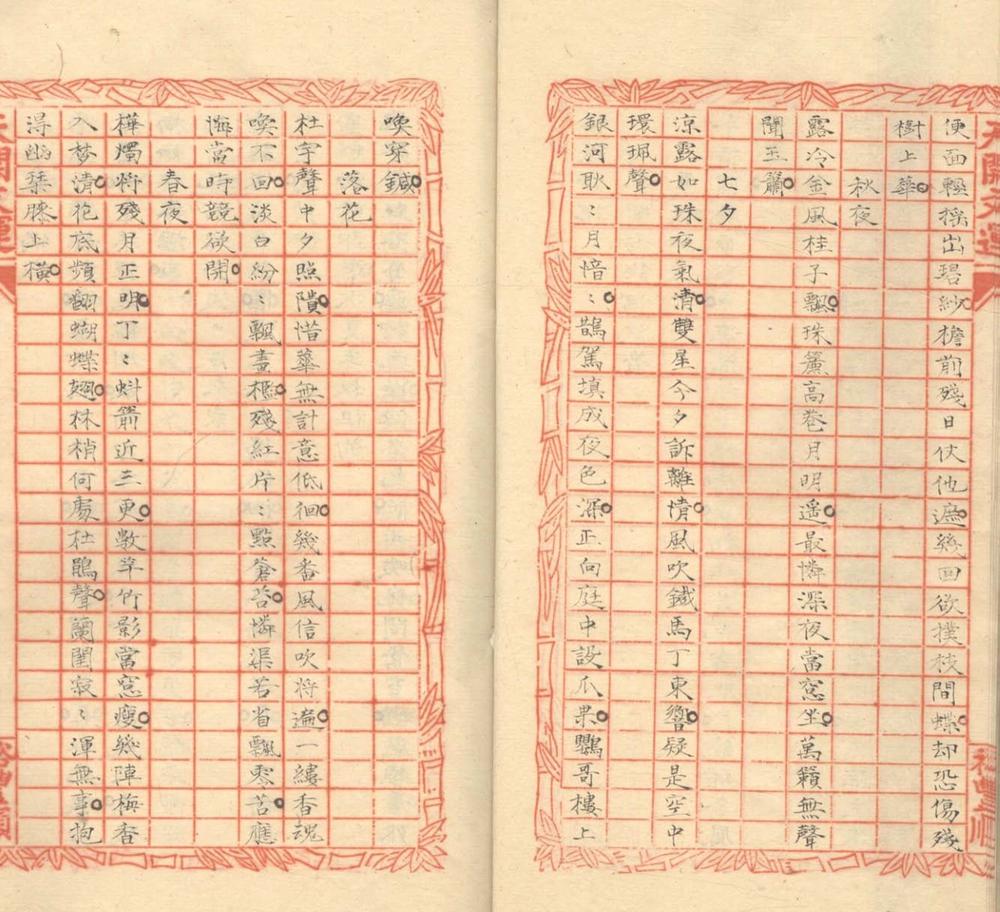 便面輕搖出碧紗檐前殘日伏他遮幾回欲撲枝間蝶却恐傷殘
樹上華
秋夜
露冷金風桂子飄珠簾高卷月明遥最憐深夜當窓坐萬籟無聲
聞玉簫
七夕
涼露如珠夜氣清雙星今夕訴離情風吹鐵馬丁東響疑是空中
環珮聲
銀河耿〻月愔〻鵲駕填成夜色深正向庭中設瓜果鸚哥樓上
喚穿鍼
落花
杜宇聲中夕照隤惜華無計意低徊幾番風信吹将遍一縷香魂
喚不回淡白紛〻飄畫檻殘紅片〻點蒼苔憐渠若省飄零苦應
悔當時競欲開
春夜
樺燭将殘月正明丁〻蚪箭近三更數竿竹影當窓瘦幾陣梅香
入梦清花底頻翻蝴蝶翅林梢何處杜鵑聲蘭閨寂〻渾無事抱
得幽琹膝上橫
天開文運